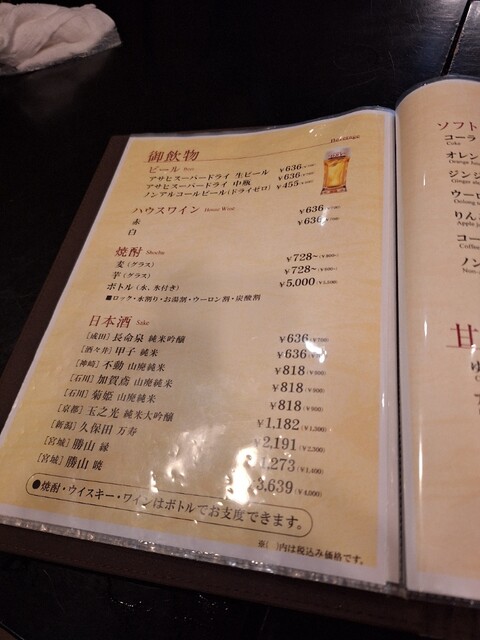 御飲物 Beverage
ビール Beer
アサヒスーパードライ 生ビール ¥636
アサヒスーパードライ 中瓶 ¥636
ノンアルコールビール(ドライゼロ) ¥455
ハウスワイン House Wine
赤 ¥636
白 ¥636
焼酎 Shochu
麦(グラス) ¥728~(¥800~)
芋(グラス) ¥728~(¥800~)
ボトル(水、氷付き) ¥5,000(¥5,500)
■ロック・水割り・お湯割・ウーロン割・炭酸割
日本酒 Sake
[成田]長命泉 純米吟醸 ¥636(¥700)
[酒々井]甲子 純米 ¥636
[神崎]不動 山廃純米 ¥818(¥900)
[石川]加賀鳶 山廃純米 ¥818(¥900)
[石川]菊姫 山廃純米 ¥818(¥900)
[京都]玉乃光 純米大吟醸 ¥1.182(¥1,300)
[新潟]久保田 万寿 ¥2.191
[宮城]勝山 縁 1.273(¥1,400)
[宮城]勝山 暁 3.639(¥4,000)
●焼酎・ウイスキー・ワインはボトルでお支度できます。
※( )内は税込み価格です。
ソフト
コーラ
Coke
オレン
Orange
ジンジ
Ginger
ウーロ
Oolong
りん
Apple
コー
Coffee
ノン
Non
甘